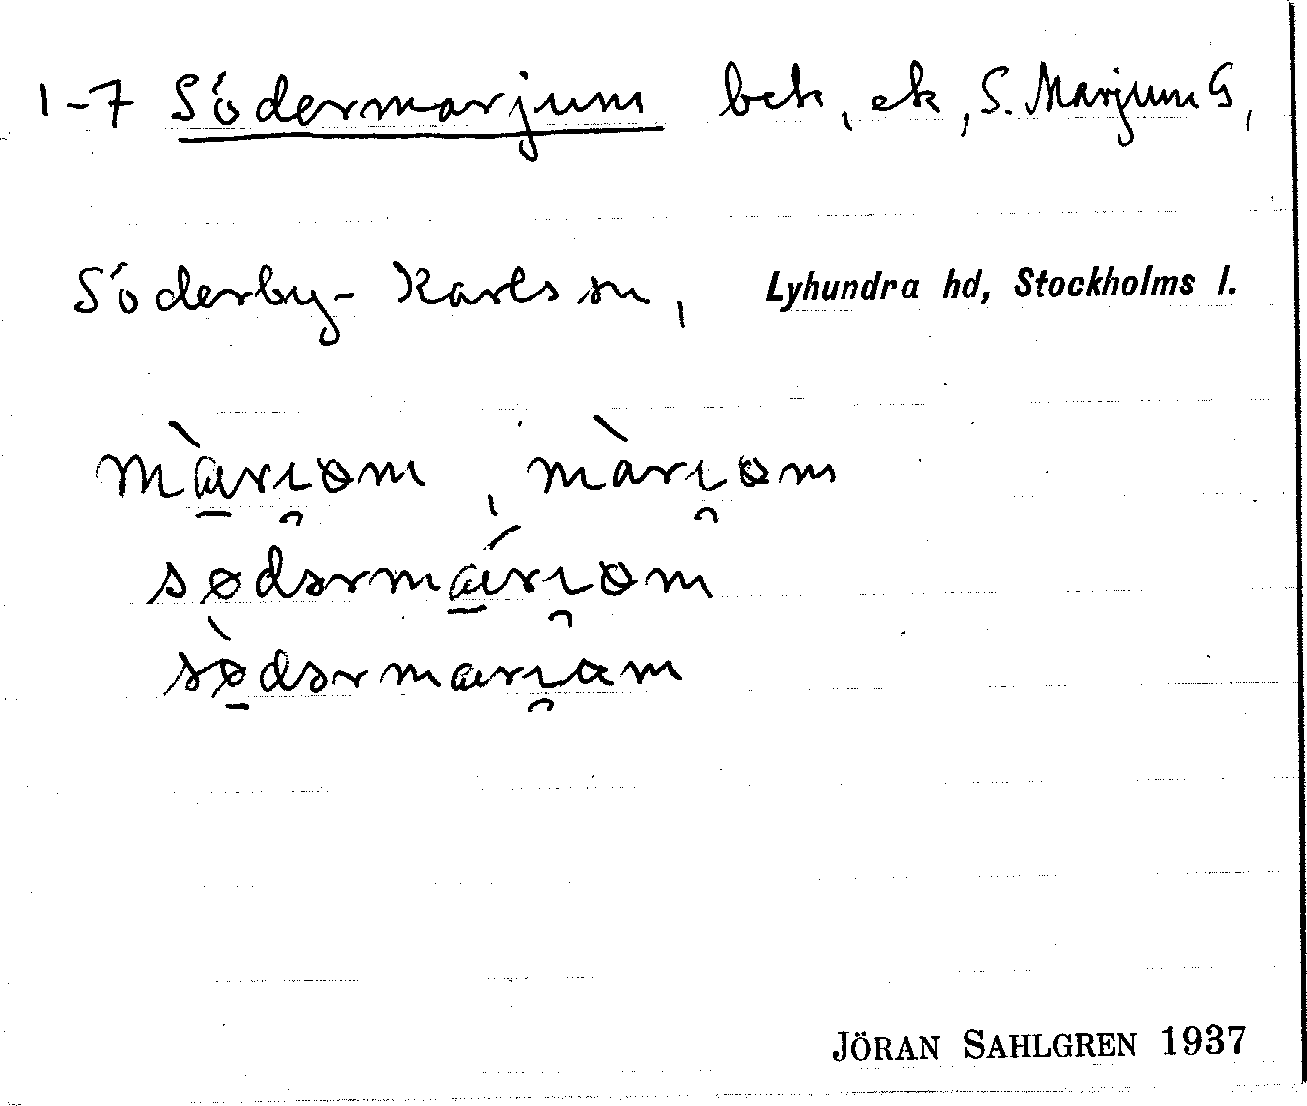 1-7 Södermarjum bek, ek, S. Marjum G,
Söderby-Karls sn, Lyhundra hd, Stockholms l.
màri̯ɷm, màri̯ɷm
sødərmári̯ɷm
sø̀dərmari̯am
JÖRAN SAHLGREN 1937